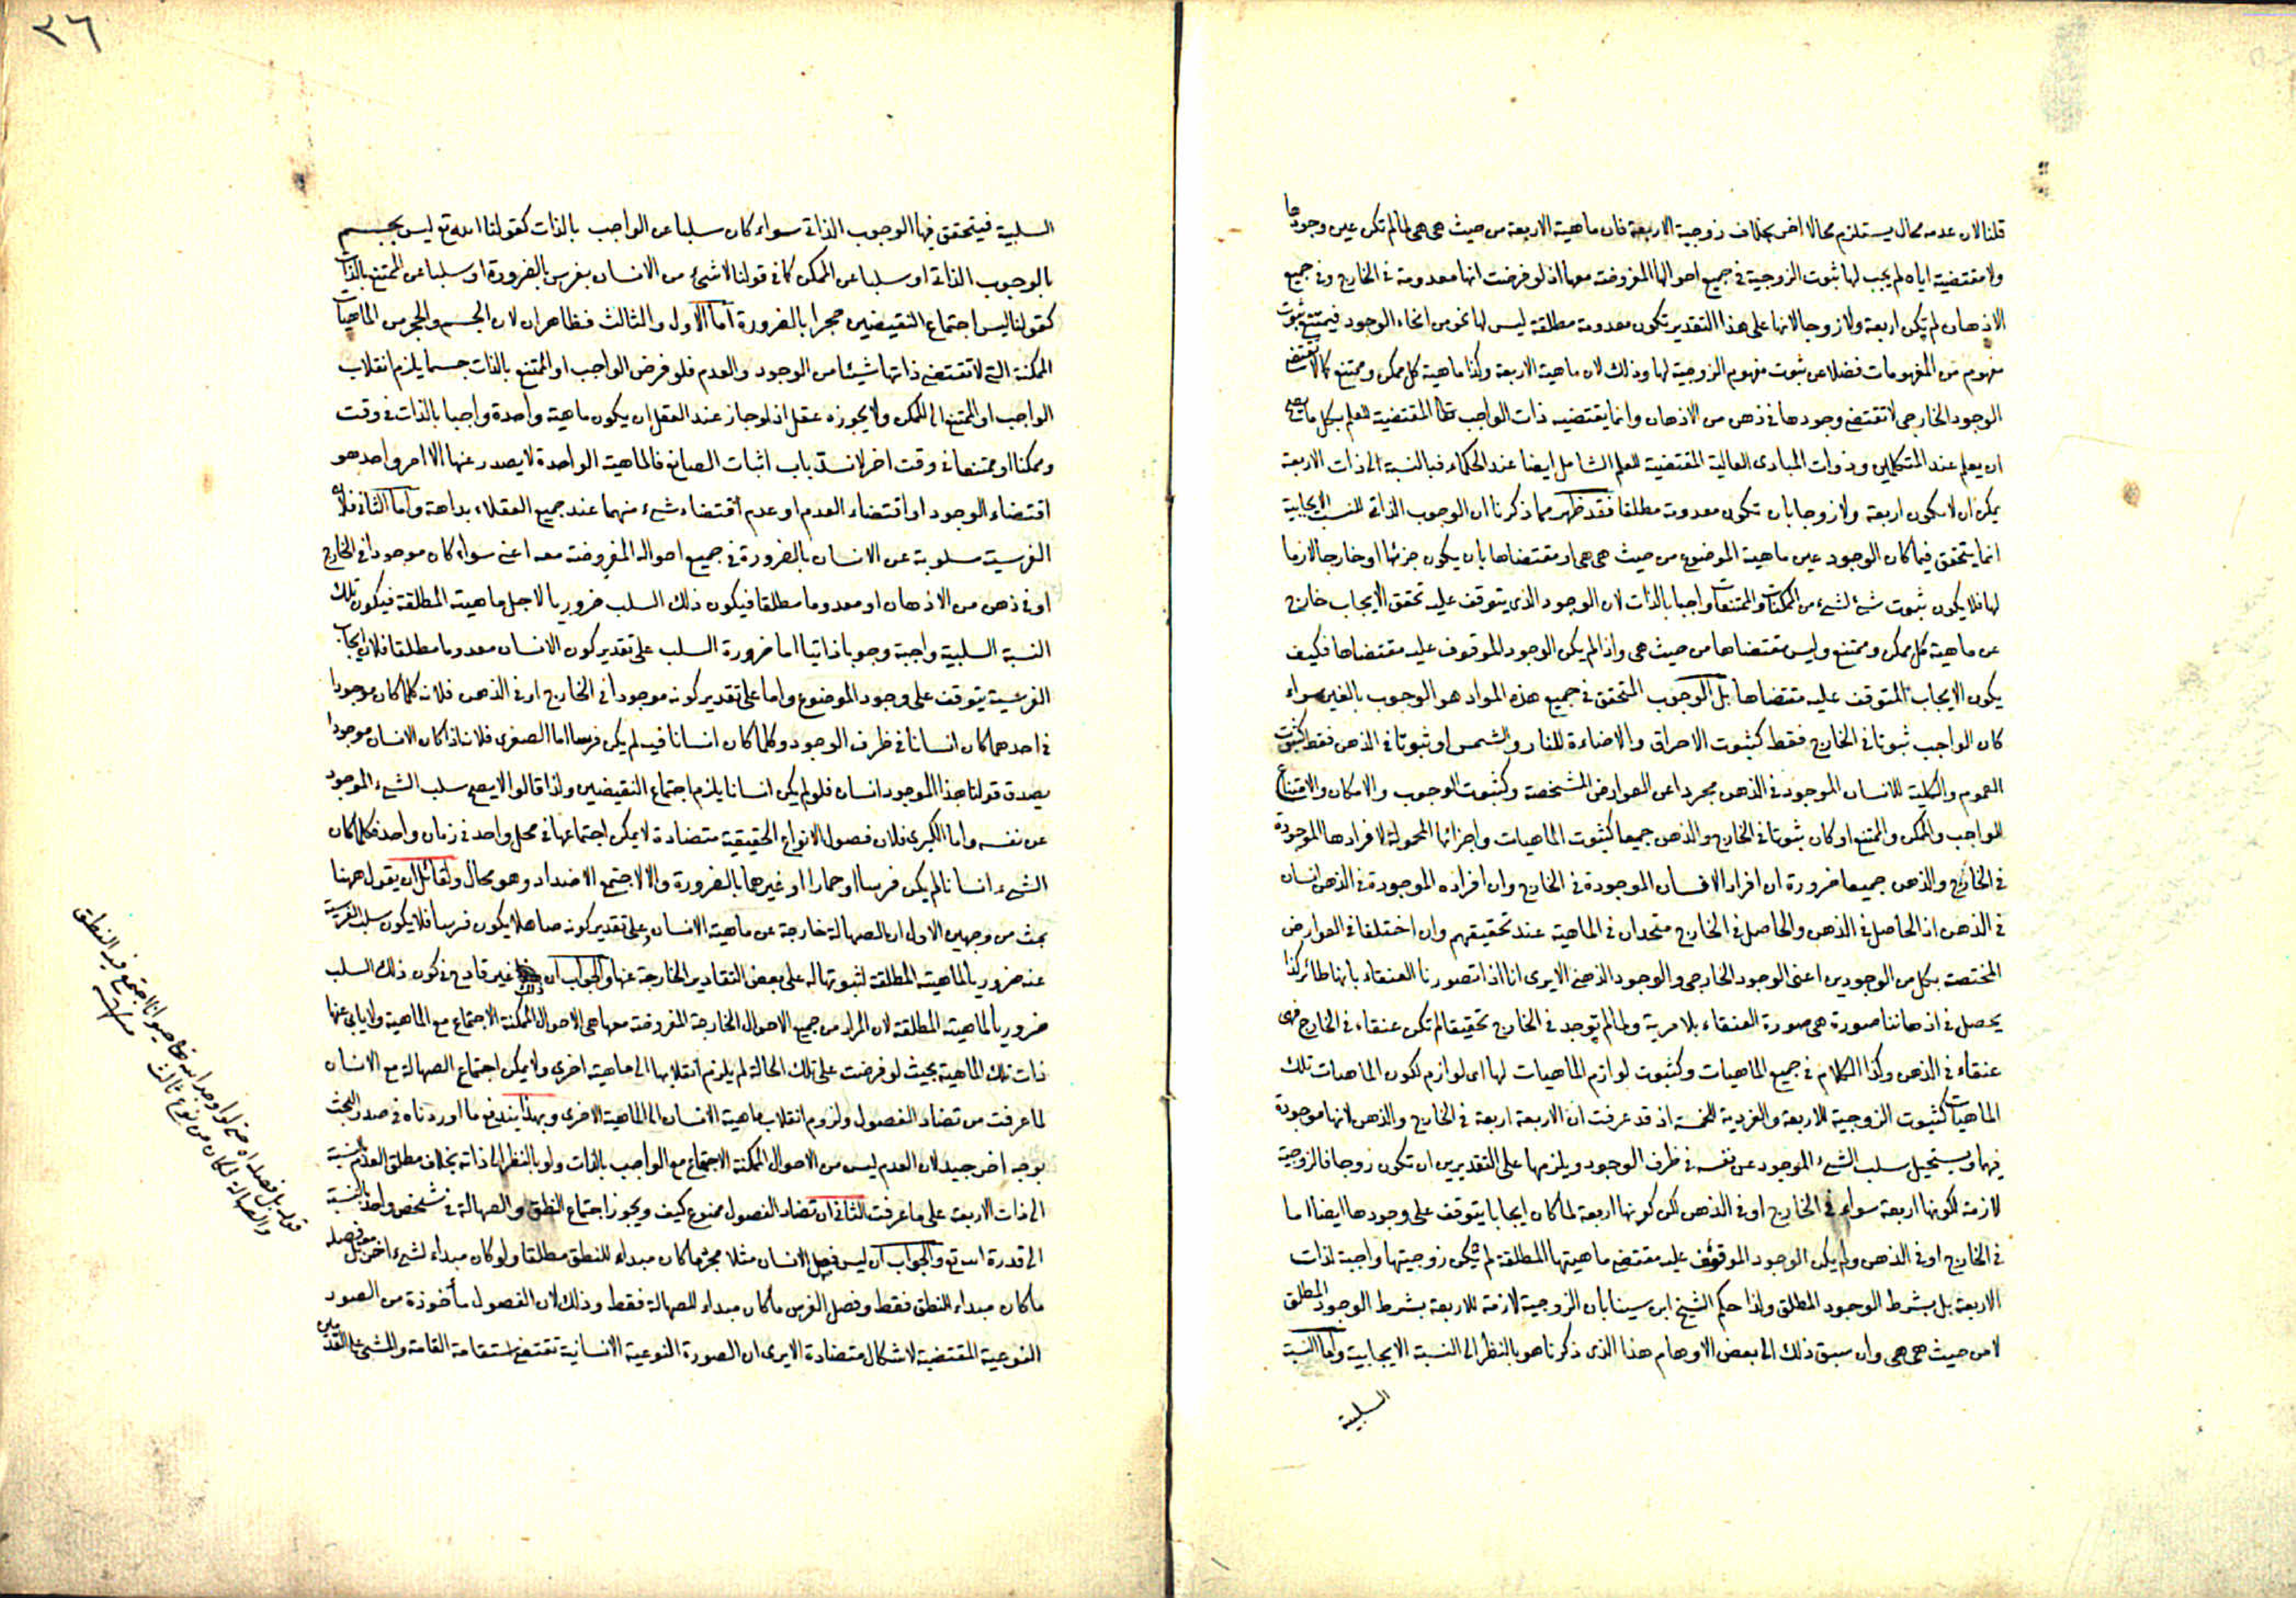 قلنا لان عدمه محال يستلزم محالا اخر بخلاف زوجية الاربعة فان ماهية الاربعة من حيث هى هى لما لم تكن عين وجودها
ولا مقتضية اياه لم يجب لها ثبوت الزوجية فى جميع احوالها المفروضة معها اذ لو فرضت انها معدومة فى الخارج وفى جميع
الاذهان لم تكن اربعة ولا زوجا لانها على هذا التقدير تكون معدومة مطلقة ليس لها نحو من انحاء الوجود فيمتنع ثبوت
مفهوم من المفهومات فضلا عن ثبوت مفهوم الزوجية لها وذلك لان ماهية الاربعة وكذا ماهية كل ممكن وممتنع كما لا تقتضى
الوجود الخارجى لا تقتضى وجودها فى ذهن من الاذهان وانما يقتضيه ذات الواجب تعالى المقتضية للعلم بكل ما يصح
ان يعلم عند المتكلمين وذوات المبادى العالية المقتضية للعلم الشامل ايضا عند الحكماء فبالنسبة الى ذات الاربعة
يمكن ان لا يكون اربعة ولا زوجا بان تكون معدومة مطلقا فقد ظهر مما ذكرنا ان الوجوب الذاتى للنسب الايجابية
انما يتحقق فيما كان الوجود عين ماهية الموضوع من حيث هى هى او مقتضاها بان يكون جزئها او خارجا لازما
لها فلا يكون ثبوت شئ لشئ من الممكنات والممتنعات واجبا بالذات لان الوجود الذى يتوقف عليه تحقق الايجاب خارج
عن ماهية كل ممكن وممتنع وليس مقتضاها من حيث هى واذا لم يكن الوجود الموقوف عليه مقتضاها فكيف
يكون الايجاب المتوقف عليه مقتضاها بل الوجوب المتحقق فى جميع هذه المواد هو الوجوب بالغير سواء
كان الواجب ثبوتا فى الخارج فقط كثبوت الاحراق والاضاءة للنار والشمس او ثبوتا فى الذهن فقط كثبوت
العموم والكلية للانسان الموجود فى الذهن مجردا عن العوارض المشخصة وكثبوت الوجوب والامكان والامتناع
للواجب والممكن والممتنع او كان ثبوتا فى الخارج والذهن جميعا كثبوت الماهيات واجزائها المحمولة لافرادها الموجودة
فى الخارج والذهن جميعا ضرورة ان افراد الانسان الموجودة فى الخارج وان افراده الموجودة فى الذهن انسان
فى الذهن اذ الحاصل فى الذهن والحاصل فى الخارج متحدان فى الماهية عند تحقيقهم وان اختلفا فى العوارض
المختصة بكل من الوجودين اعنى الوجود الخارجى والوجود الذهنى الا يرى انا اذا تصورنا العنقاء بانها طائر كذا
يحصل فى اذهاننا صورة هى صورة العنقاء بلا مرية ولما لم توجد فى الخارج تحقيقا لم تكن عنقاء فى الخارج فهى
عنقاء فى الذهن وكذا الكلام فى جميع الماهيات وكثبوت لوازم الماهيات لها اى لوازم لكون الماهيات تلك
الماهيات كثبوت الزوجية للاربعة والفردية للخمسة اذ قد عرفت ان الاربعة اربعة فى الخارج والذهن لانها موجودة
فيهما ويستحيل سلب الشئ الموجود عن نفسه فى ظرف الوجود ويلزمها على التقديرين ان تكون زوجا فالزوجية
لازمة لكونها اربعة سواء فى الخارج او فى الذهن لكن كونها اربعة لما كان ايجابا يتوقف على وجودها ايضا اما
فى الخارج او فى الذهن ولم يكن الوجود الموقوف عليه مقتضى ماهيتها المطلقة لم تكن زوجيتها واجبة لذات
الاربعة بل بشرط الوجود المطلق ولذا حكم الشيخ ابن سينا بان الزوجية لازمة للاربعة بشرط الوجود المطلق
لا من حيث هى هى وان سبق ذلك الى بعض الاوهام هذا الذى ذكرنا هو بالنظر الى النسبة الايجابية واما النسبة
السلبية
٣٦
السلبية فيتحقق فيها الوجوب الذاتى سواء كان سلبا عن الواجب بالذات كقولنا الله تع ليس بجسم
بالوجوب الذاتى او سلبا عن الممكن كما فى قولنا لا شئ من الانسان بفرس بالضرورة او سلبا عن الممتنع بالذات
كقولنا ليس اجتماع النقيضين حجرا بالضرورة اما الاول والثالث فظاهران لان الجسم والحجر من الماهيات
الممكنة التى لا تقتضى ذاتها شيئا من الوجود والعدم فلو فرض الواجب او الممتنع بالذات جسما يلزم انقلاب
الواجب او الممتنع الى الممكن ولا يجوزه عقل اذ لو جاز عند العقل ان يكون ماهية واحدة واجبا بالذات فى وقت
وممكنا او ممتنعا فى وقت اخر لانسد باب اثبات الصانع فالماهية الواحدة لا يصدر عنها الا امر واحد هو
اقتضاء الوجود او اقتضاء العدم او عدم اقتضاء شئ منهما عند جميع العقلاء بداهة واما الثانى فلان
الفرسية مسلوبة عن الانسان بالضرورة فى جميع احواله المفروضة معه اعنى سواء كان موجودا فى الخارج
او فى ذهن من الاذهان او معدوما مطلقا فيكون ذلك السلب ضروريا لاجل ماهيته المطلقة فيكون تلك
النسبة السلبية واجبة وجوبا ذاتيا اما ضرورة السلب على تقدير كون الانسان معدوما مطلقا فلان ايجاب
الفرسية يتوقف على وجود الموضوع واما على تقدير كونه موجودا فى الخارج او فى الذهن فلانه كلما كان موجودا
فى احدهما كان انسانا فى ظرف الوجود وكلما كان انسانا فيه لم يكن فرسا اما الصغرى فلانه اذا كان الانسان موجودا
يصدق قولنا هذا الموجود انسان فلو لم يكن انسانا يلزم اجتماع النقيضين ولذا قالوا لا يصح سلب الشئ الموجود
عن نفسه واما الكبرى فلان فصول الانواع الحقيقية متضادة لا يمكن اجتماعها فى محل واحد فى زمان واحد فكلما كان
الشئ انسانا لم يكن فرسا او حمارا او غيرهما بالضرورة والا لاجتمع الاضداد وهو محال ولقائل ان يقول ههنا
بحث من وجهين الاول ان الصهالة خارجة عن ماهية الانسان وعلى تقدير كونه صاهلا يكون فرسا فلا يكون سلب الفرسية
عنه ضروريا لماهيته المطلقة لثبوتها له على بعض التقادير الخارجة عنها والجواب ان ذلك غير قادح فى كون ذلك السلب
ضروريا لماهيته المطلقة لان المراد من جميع الاحوال الخارجة المفروضة معها هى الاحوال الممكنة الاجتماع مع الماهية ولا يابى عنها
ذات تلك الماهية بحيث لو فرضت على تلك الحالة لم يلزم انقلابها الى ماهية اخرى ولا يمكن اجتماع الصهالة مع الانسان
لما عرفت من تضاد الفصول ولزوم انقلاب ماهية الانسان الى الماهية الاخرى وبهذا يندفع ما اوردناه فى صدر البحث
بوجه اخر جيد لان العدم ليس من الاحوال الممكنة الاجتماع مع الواجب بالذات ولو بالنظر الى ذاته بخلاف مطلق العدم بالنسبة
الى ذات الاربعة على ما عرفت الثانى ان تضاد الفصول ممنوع كيف ويجوز اجتماع النطق والصهالة فى شخص واحد بالنسبة
الى قدرة الله تع والجواب ان ليس فصل الانسان مثلا مجرد ما كان مبداء للنطق مطلقا ولو كان مبداء لشئ اخر بل فصله
ما كان مبداء للنطق فقط وفصل الفرس ما كان مبداء للصهالة فقط وذلك لان الفصول مأخوذة من الصور
النوعية المقتضية لاشكال متضادة الا يرى ان الصورة النوعية الانسانية تقتضى استقامة القامة والمشى على القدمين
قوله بل فصله اه حتى لو اوجد الله تعالى حيوانا اجتمع فيه النطق
والصهالة لكان من نوع ثالث